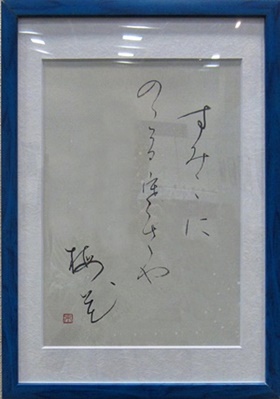 すみゞゝに
のこる寒さや
梅の花